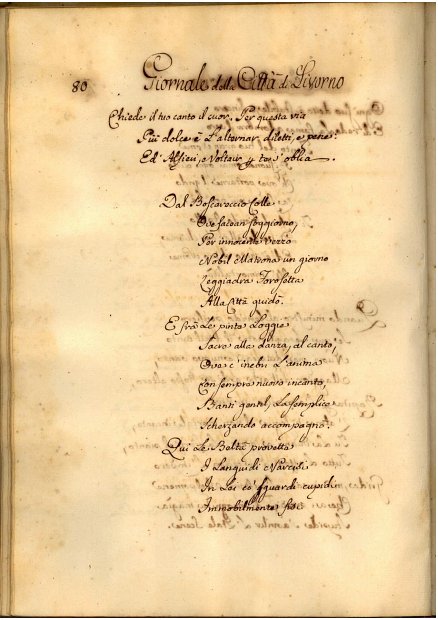 80 Giornale della Città di Livorno
Chiede il tuo canto il cuor. Per questa via
Più dolce è L'alternar diletti, e pene:
Ed Alfieri, e Voltair
Dal Boscareccio Colle
Ove facean soggiorno,
Per innocente vezzo
Nobil Matrona un giorno
Leggiadra Forosetta
Alla Città guidò.
E frà Le pinte Loggie
Sacre alla danza, al canto,
Ove s'inebri L'anima
Con sempre nuovo incanto,
Ivanti gentil, La semplice
Scherzando accompagnò.
Qui Le Beltà provette
I Languidi Narcisi
In Lei co' sguardi cupidi
Immobilmente fisi